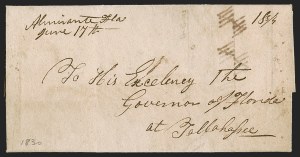 Almirante Fla
June 17th
18¾
To His Excelency The
Governor of Florida
at Tallahassee
1850